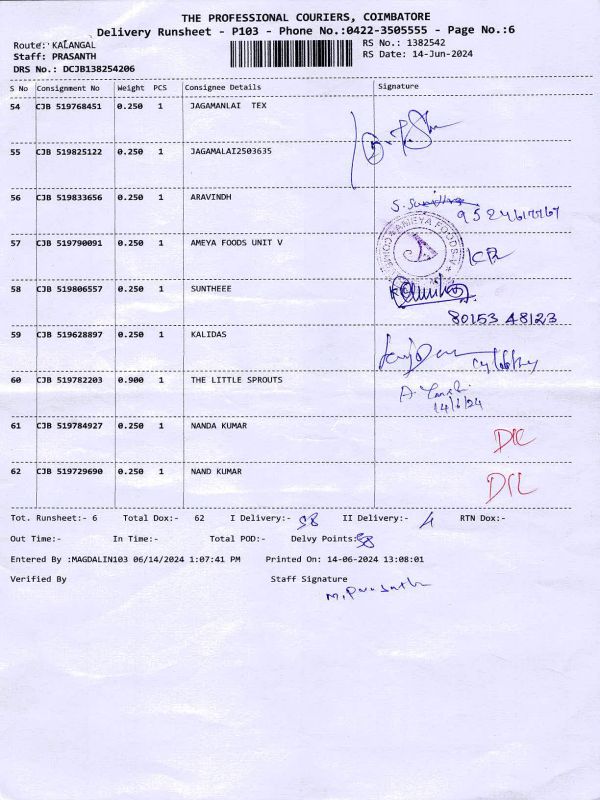 THE PROFESSIONAL COURIERS, COIMBATORE
Delivery Runsheet - P103 - Phone No.:0422-3505555 - Page No.:6
Route: KALANGAL RS No.: 1382542
Staff: PRASANTH RS Date: 14-Jun-2024
DRS No.: DCJB138254206
S No Consignment No Weight PCS Consignee Details Signature
54 CJB 519768451 0.250 1 JAGAMANLAI TEX
55 CJB 519825122 0.250 1 JAGAMALAI2503635
56 CJB 519833656 0.250 1 ARAVINDH
AMEYA FOODS
57 CJB 519790091 0.250 1 AMEYA FOODS UNIT V
58 CJB 519806557 0.250 1 SUNTHEEE
80153 48123
59 CJB 519628897 0.250 1 KALIDAS
60 CJB 519782203 0.900 1 THE LITTLE SPROUTS
14/6/24
61 CJB 519784927 0.250 1 NANDA KUMAR
62 CJB 519729690 0.250 1 NAND KUMAR
Tot. Runsheet:- 6 Total Dox:- 62 I Delivery:- 58 II Delivery:- 4 RTN Dox:-
Out Time:- In Time:- Total POD:- Delvy Points:58
Entered By :MAGDALIN103 06/14/2024 1:07:41 PM Printed On: 14-06-2024 13:08:01
Verified By Staff Signature
M. Prasanth